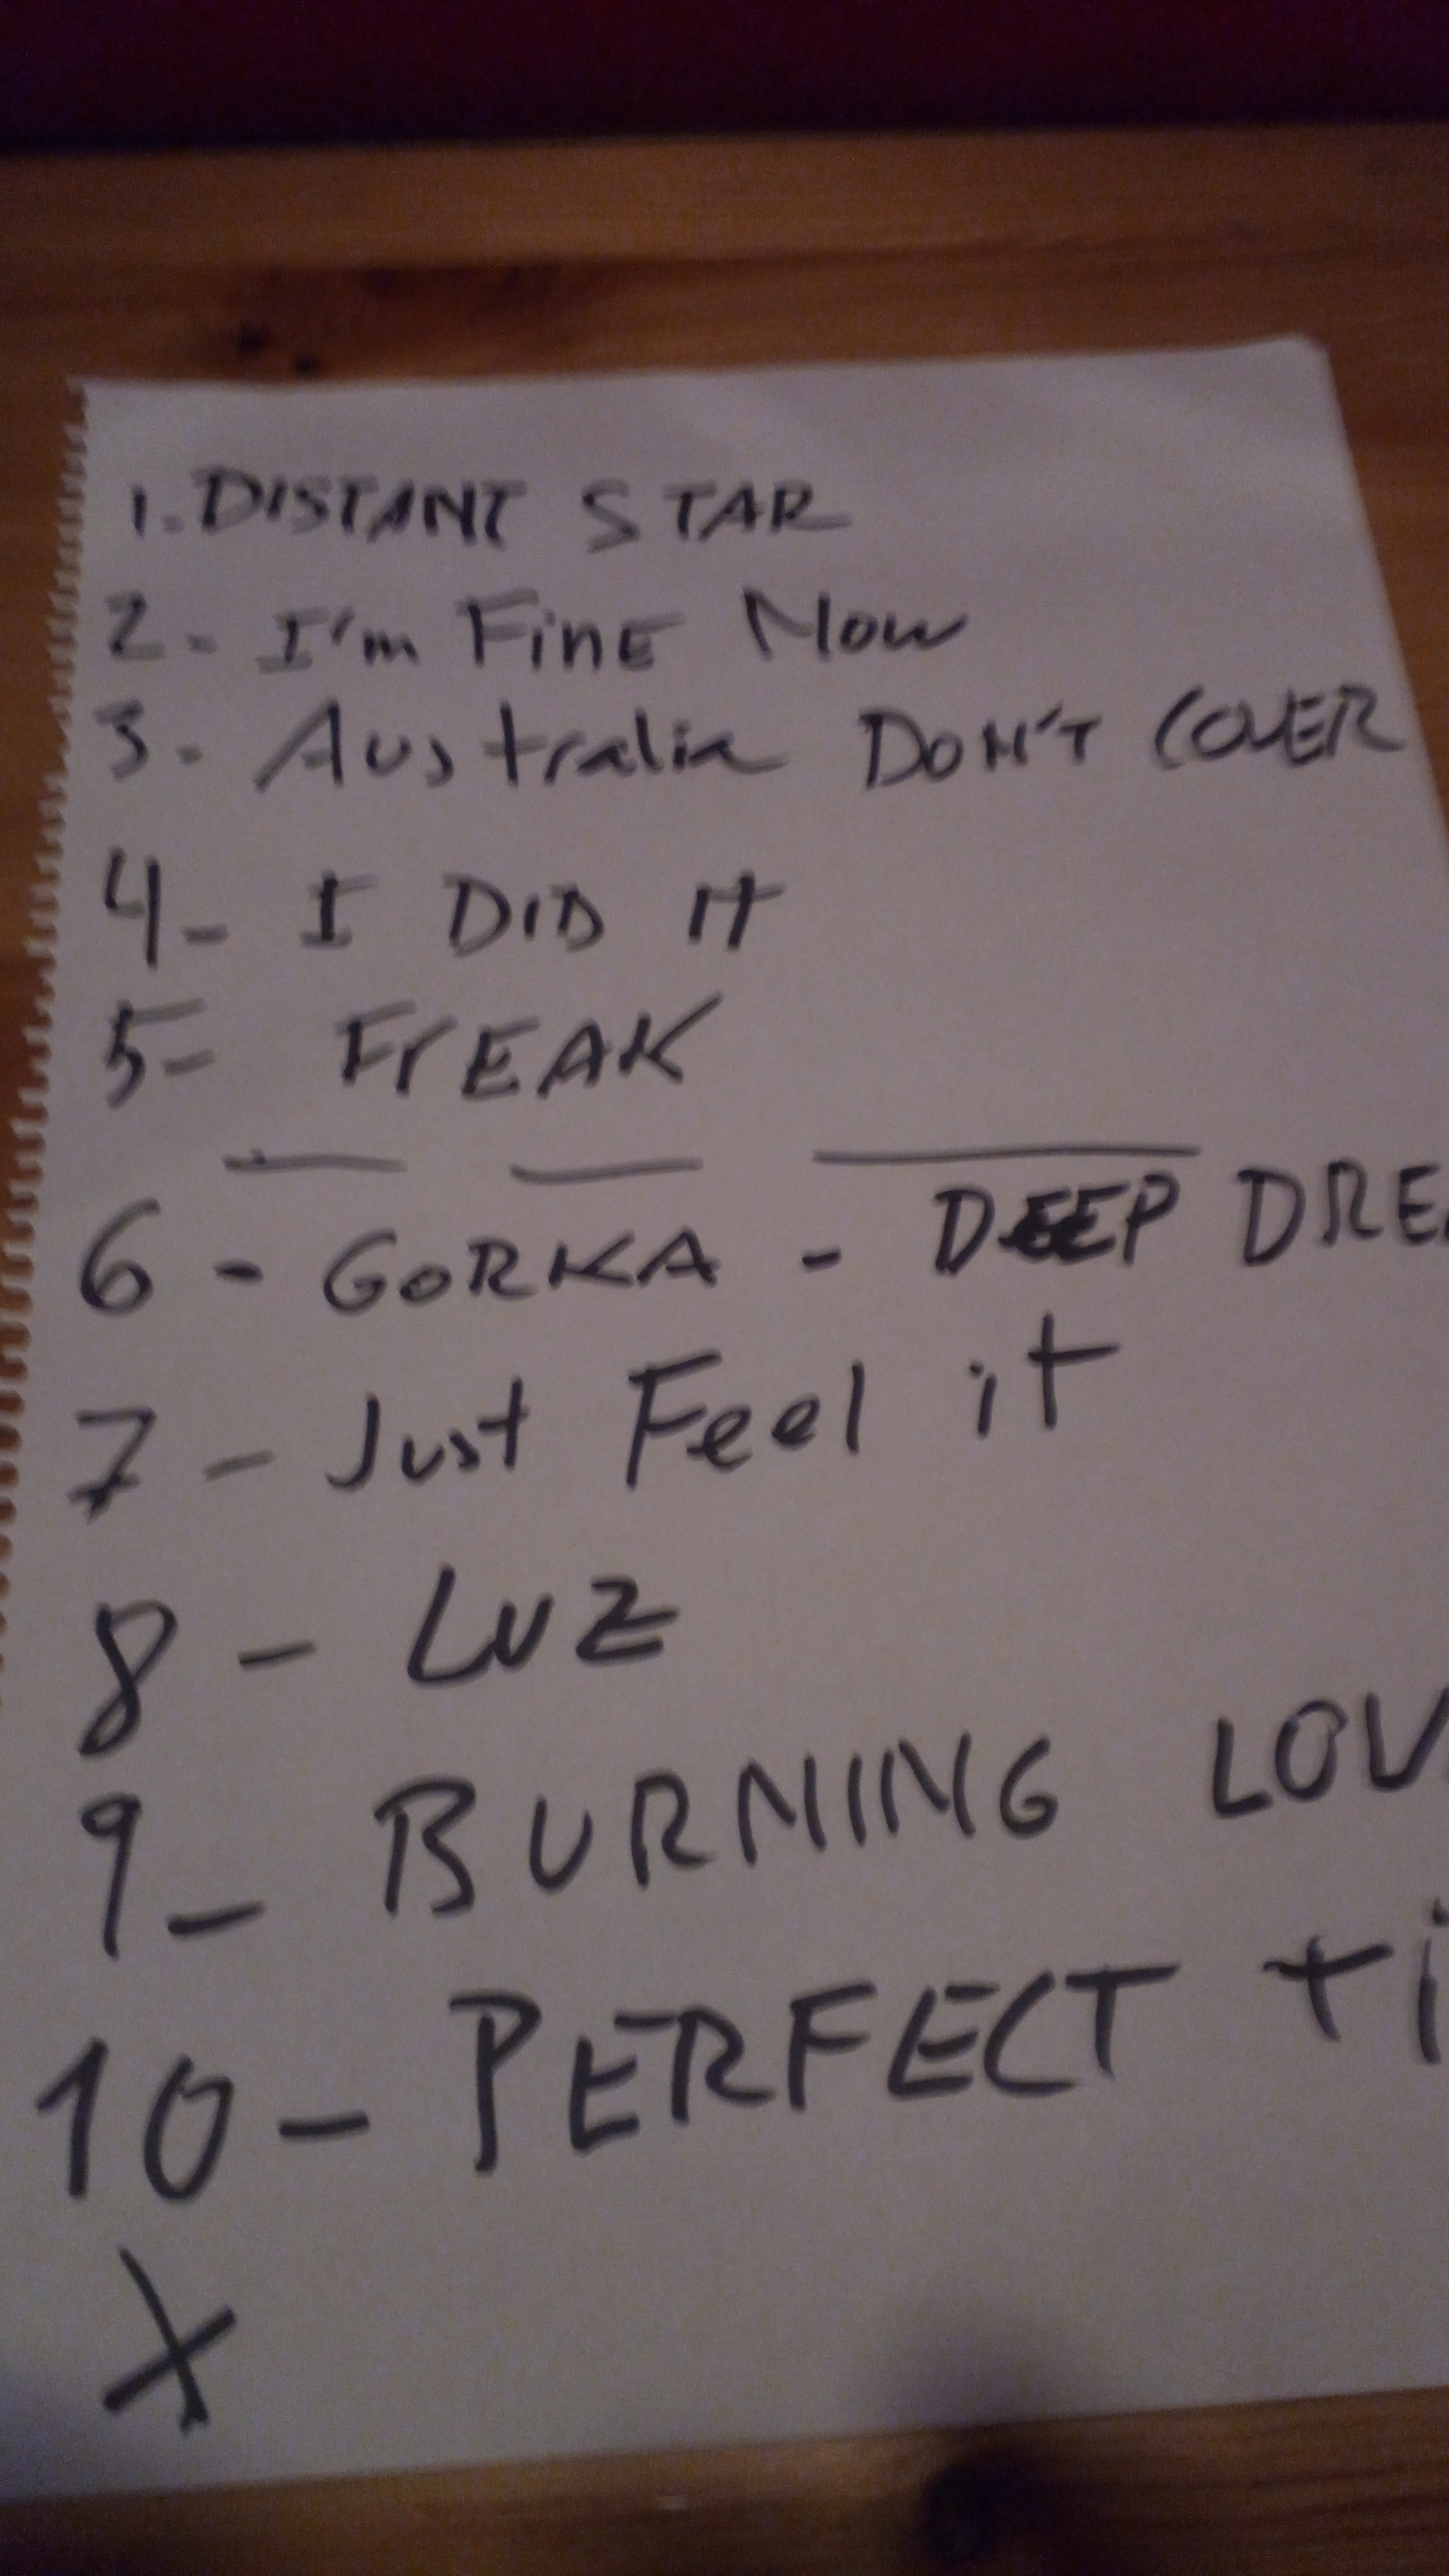 1. DISTANT STAR
2 - I'm FinE Now
3 - Australia DON'T COVER
4 - I DID It
5 - FrEAK
6 - GORKA - DEEP DRE
7 - Just Feel it
8 - LUZ
9 - BURNING LOV
10 - PERFECT ti
X